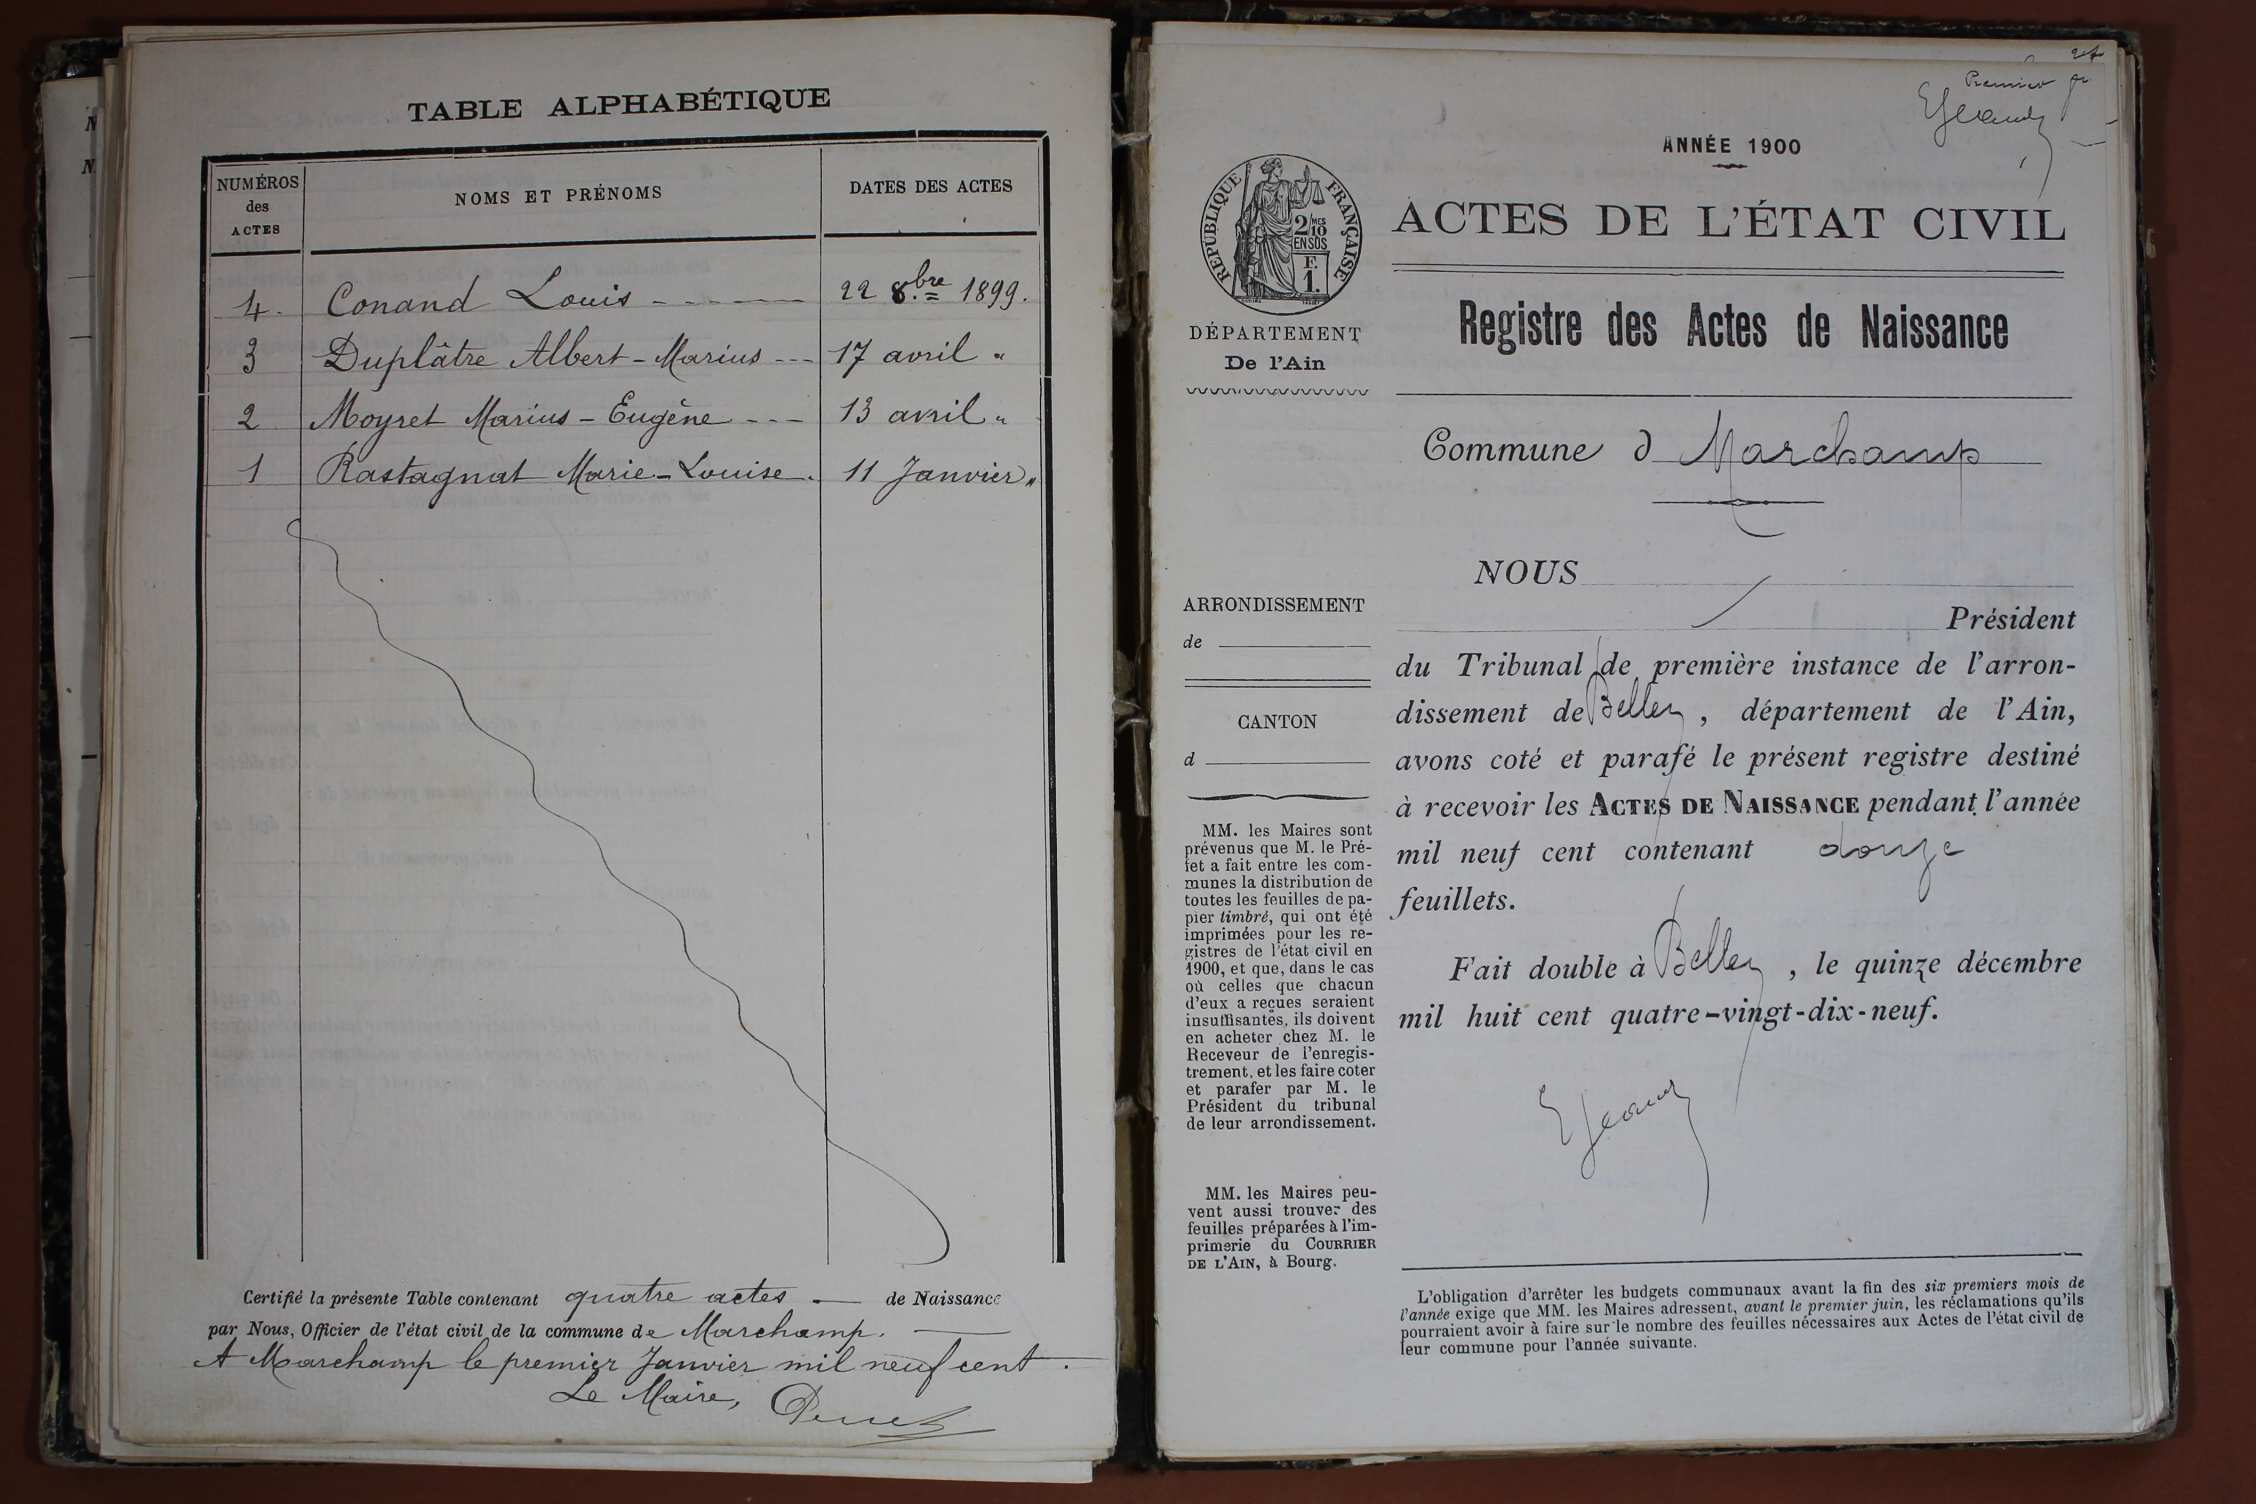 TABLE ALPHABÉTIQUE
NUMÉROS
des
ACTES
NOMS ET PRÉNOMS
DATES DES ACTES
4. Conand Louis 22 8bre 1899.
3 Duplâtre Albert-Marius 17 avril "
2 Moyret Marius-Eugène 13 avril "
1 Rastagnat Marie-Louise. 11 Janvier "
Certifié la présente Table contenant quatre actes de Naissance
par Nous, Officier de l'état civil de la commune de Marchamp.
A Marchamp le premier Janvier mil neuf cent.
Le Maire,
Premier
ANNÉE 1900
RÉPUBLIQUE FRANÇAISE
2/10MES
EN SUS
F.
1.
ACTES DE L'ÉTAT CIVIL
Registre des Actes de Naissance
DÉPARTEMENT
De l'Ain
Commune d Marchamp
ARRONDISSEMENT
de
CANTON
d
MM. les Maires sont
prévenus que M. le Pré-
fet a fait entre les com-
munes la distribution de
toutes les feuilles de pa-
pier timbré, qui ont été
imprimées pour les re-
gistres de l'état civil en
1900, et que, dans le cas
où celles que chacun
d'eux a reçues seraient
insuffisantes, ils doivent
en acheter chez M. le
Receveur de l'enregis-
trement, et les faire coter
et parafer par M. le
Président du tribunal
de leur arrondissement.
MM. les Maires peu-
vent aussi trouver des
feuilles préparées à l'im-
primerie du COURRIER
DE L'AIN, à Bourg.
NOUS
Président
du Tribunal de première instance de l'arron-
dissement de Belley, département de l'Ain,
avons coté et parafé le présent registre destiné
à recevoir les ACTES DE NAISSANCE pendant l'année
mil neuf cent contenant douze
feuillets.
Fait double à Belley, le quinze décembre
mil huit cent quatre-vingt-dix-neuf.
L'obligation d'arrêter les budgets communaux avant la fin des six premiers mois de
l'année exige que MM. les Maires adressent, avant le premier juin, les réclamations qu'ils
pourraient avoir à faire sur le nombre des feuilles nécessaires aux Actes de l'état civil de
leur commune pour l'année suivante.